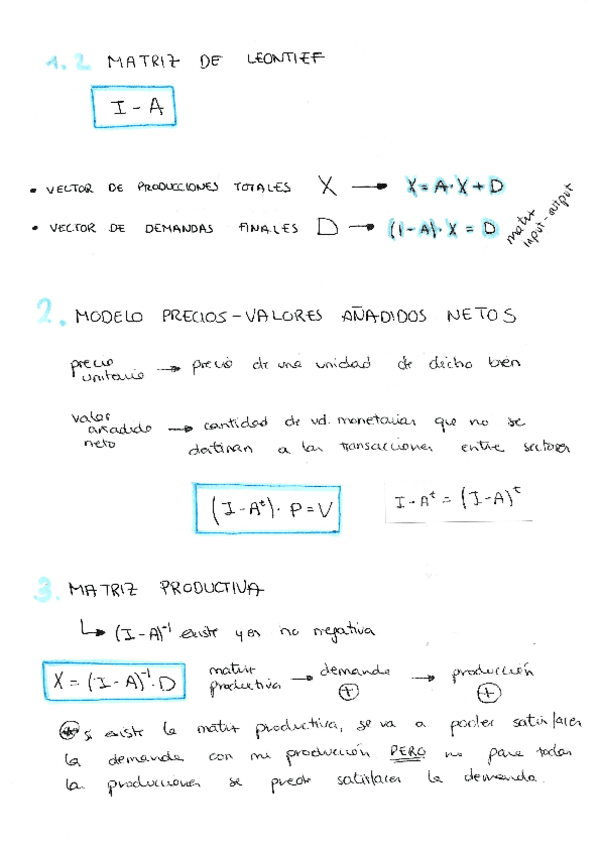 1.2 MATRIZ DE LEONTIEF
I - A
• VECTOR DE PRODUCCIONES TOTALES X → X = A·X + D
• VECTOR DE DEMANDAS FINALES D → (I-A)·X = D matriz input-output
2. MODELO PRECIOS-VALORES AÑADIDOS NETOS
precio unitario → precio de una unidad de dicho bien
valor añadido neto → cantidad de ud. monetarias que no se
destinan a las transacciones entre sectores
(I-Aᵗ)· P = V
I-Aᵗ = (I-A)ᵗ
3. MATRIZ PRODUCTIVA
↳ (I-A)⁻¹ existe y es no negativa
X = (I-A)⁻¹·D
matriz productiva → demanda ⊕ → producción ⊕
⊛ Si existe la matriz productiva, se va a poder satisfacer
la demanda con mi producción PERO no para todas
las producciones se puede satisfacer la demanda.